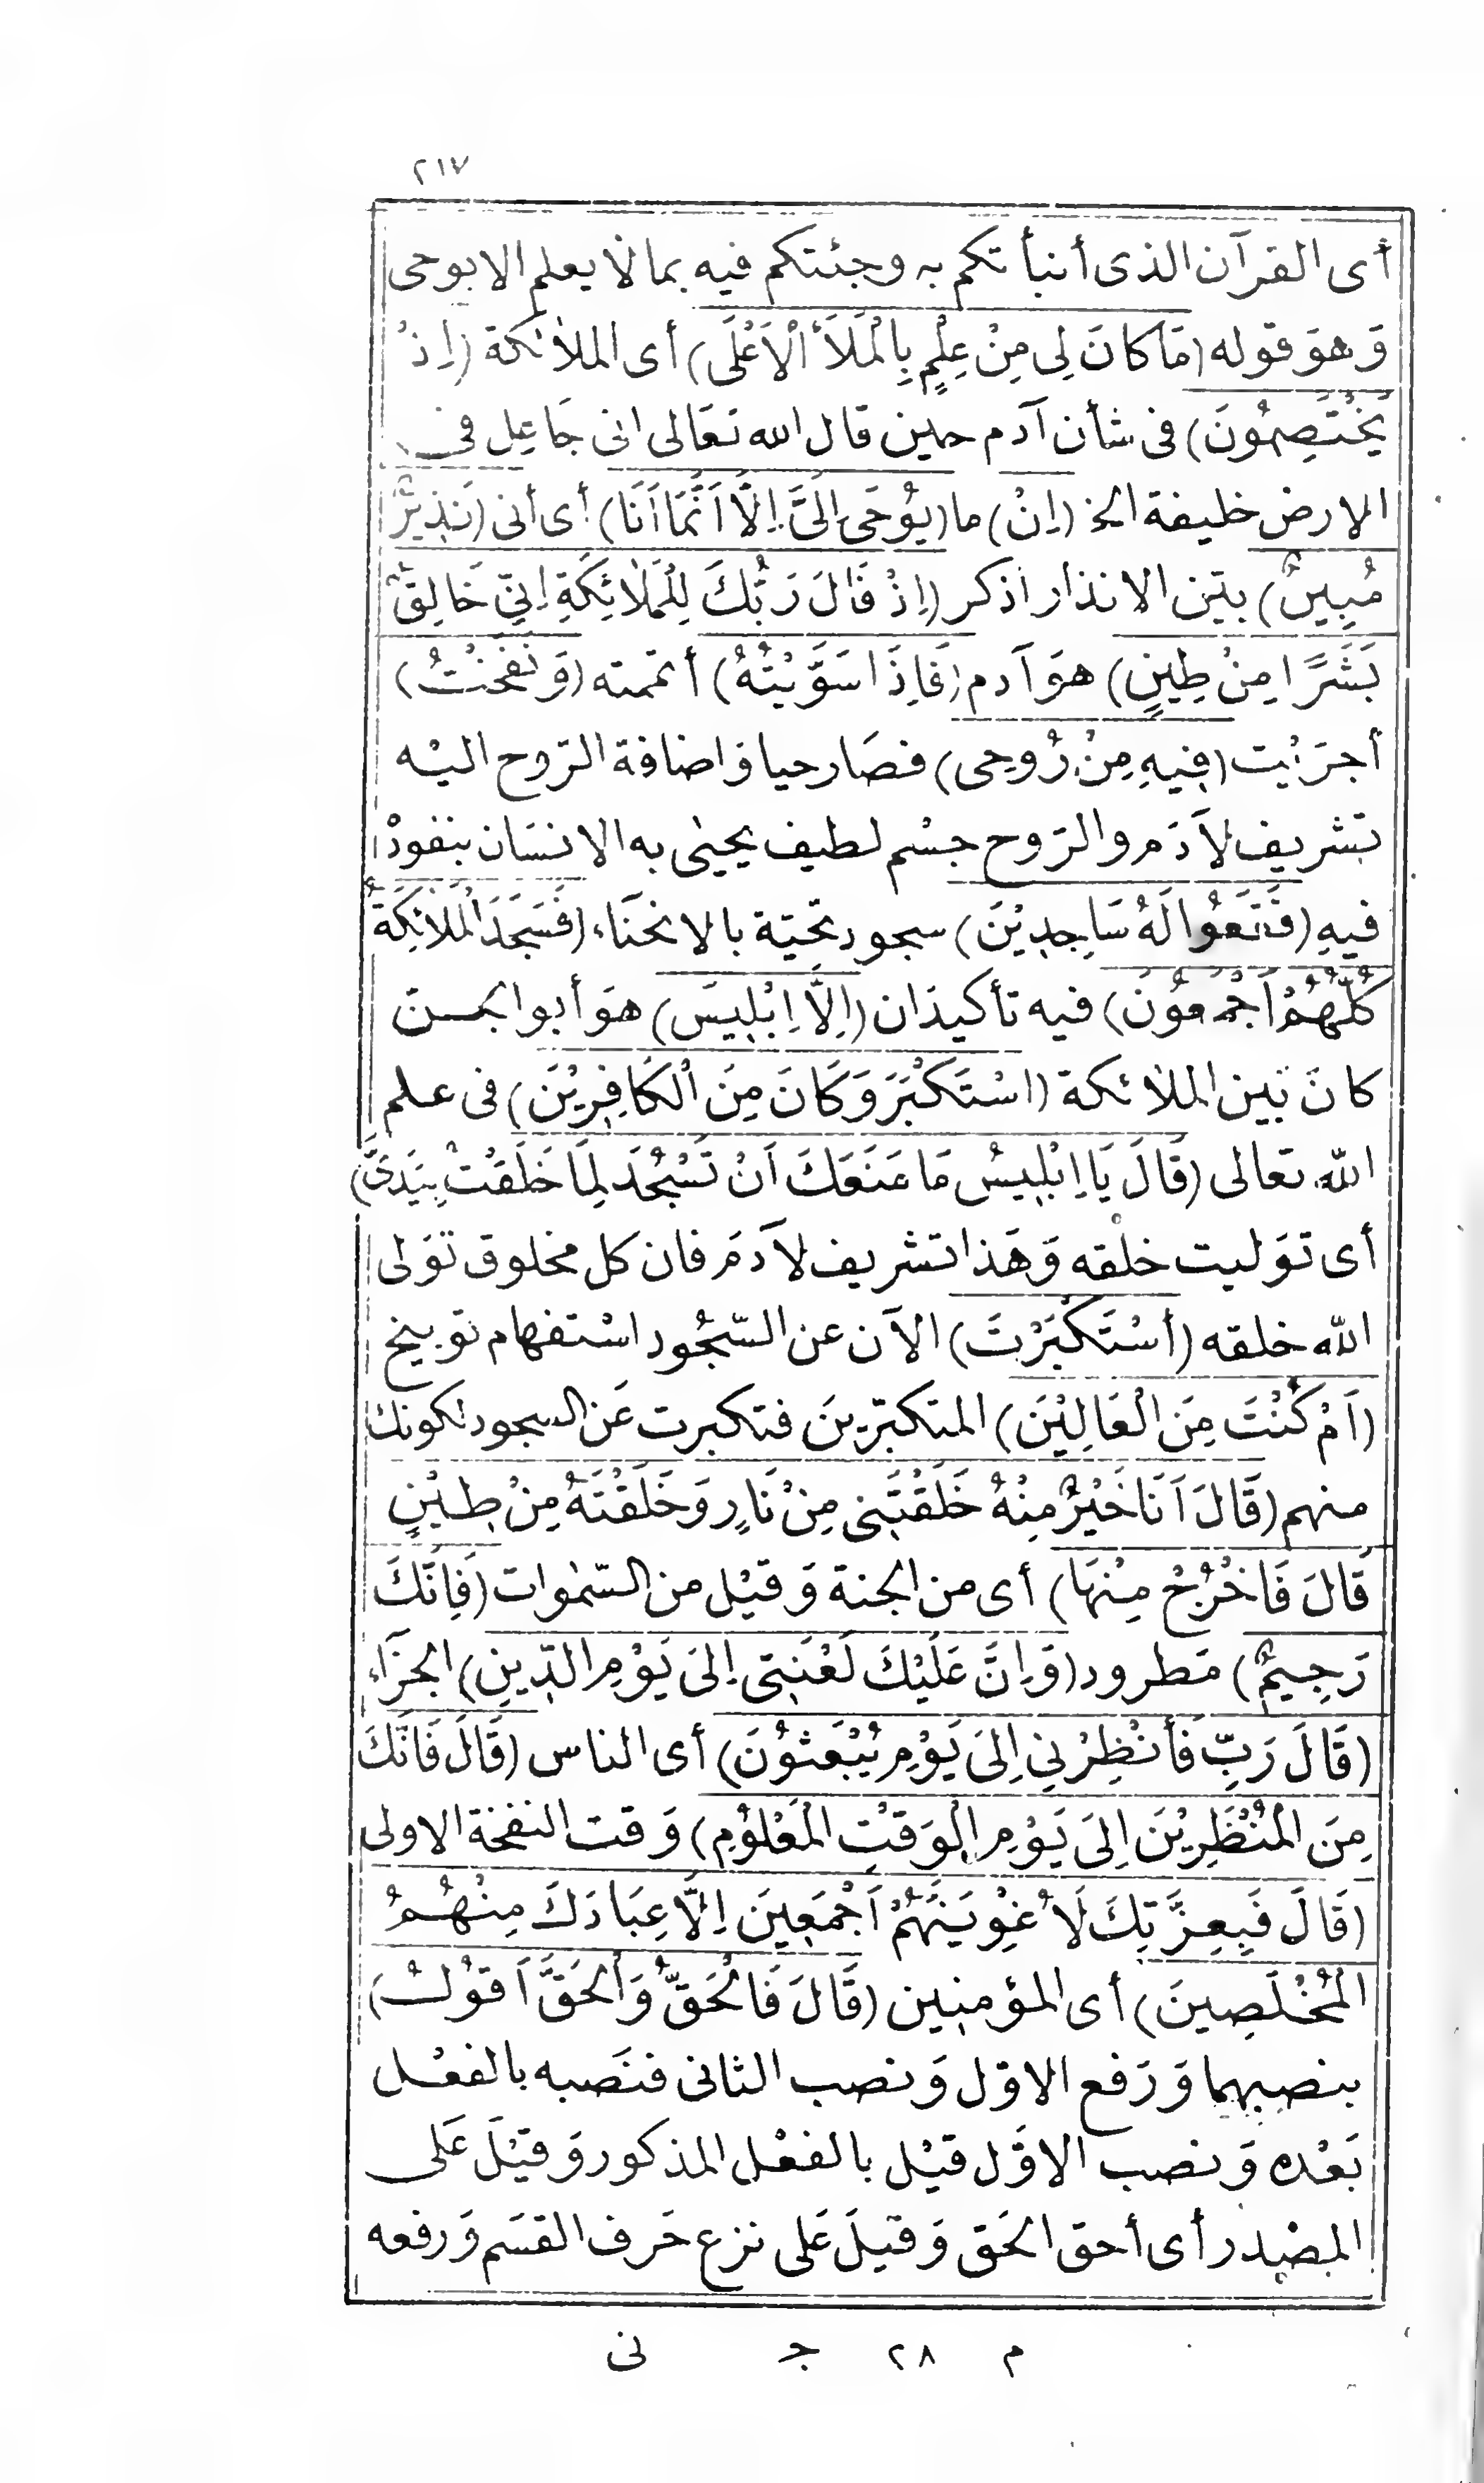 ٢١٧
أى القرآن الذى أنبأتكم به وجئتكم فيه بما لا يعلم الا بوحى
وَهوَ قوله (مَا كانَ لِى مِنْ عِلْمٍ بِالْمَلَأِ الْاَعْلَى) أى الملائكة (اِذْ
يَخْتَصِمُونَ) فى شأن آدم حين قال الله تعَالى انى جَاعِل فى
الارض خليفة الخ (اِنْ) ما (يُوْحَى اِلَىَّ اِلَّا اَنَّمَا اَنَا) أى أنى (نَذِيرٌ
مُبِينٌ) بيّن الانذار اذكر (اِذْ قَالَ رَبُّكَ لِلْمَلَائِكَةِ اِنِّي خَالِقٌ
بَشَرًا مِنْ طِينٍ) هوَ آدم (فَاِذَا سَوَّيْتُهُ) أتممته (وَنَفَخْتُ)
أجرَيْت (فِيهِ مِنْ رُوحِى) فصَار حيا وَاضافة الرّوح اليْه
تشريف لآدَم والرّوح جسْم لطيف يحيٰى به الانسَان بنفوذْ
فيهِ (فَقَعُوا لَهُ سَاجِدِيْنَ) سجود تحيّة بالانحنَاء (فَسَجَدَ الْمَلَائِكَةُ
كُلُّهُمْ اَجْمَعُوْنَ) فيه تأكيدَان (اِلَّا اِبْلِيسَ) هوَ أبو الجــنّ
كانَ بَين الملائكة (اسْتَكْبَرَ وَكَانَ مِنَ الْكَافِرِيْنَ) فى علم
اللّه تعالى (قَالَ يَا اِبْلِيسُ مَا مَنَعَكَ اَنْ تَسْجُدَ لِمَا خَلَقْتُ بِيَدَىَّ)
أى توَليت خلقه وَهَذا تشريف لآدمَ فان كل مخلوق توَلى
اللّه خلقه (أسْتَكْبَرْتَ) الآن عن السّجُود اسْتفهام توبيخ
(اَمْ كُنْتَ مِنَ الْعَالِيْنَ) المتكبّرينَ فتكبرت عَن السجود لكونك
منهم (قَالَ اَنَا خَيْرٌ مِنْهُ خَلَقْتَنِى مِنْ نَارٍ وَخَلَقْتَهُ مِنْ طِيْنٍ
قَالَ فَاخْرُجْ مِنْهَا) أى من الجنة وَقيْل من السّمٰوات (فَاِنَّكَ
رَجِيمٌ) مَطرود (وَاِنَّ عَلَيْكَ لَعْنَتِى اِلىَ يَوْمِ الدِّينِ) الجزَآء
(قَالَ رَبِّ فَأَنْظِرْنِي اِلىَ يَوْمِ يُبْعَثُوْنَ) أى الناس (قَالَ فَاِنَّكَ
مِنَ الْمُنْظَرِيْنَ اِلىَ يَوْمِ الْوَقْتِ الْمَعْلُوْمِ) وَقت النفخة الاولى
(قَالَ فَبِعِزَّتِكَ لَاُغْوِيَنَّهُمْ اَجْمَعِينَ اِلَّا عِبَادَكَ مِنْهُــمُ
الْمُخْلَصِينَ) أى المؤمنين (قَالَ فَالْحَقُّ وَالْحَقَّ اَقُوْلُ)
بنصبهما وَرَفع الاوّل وَنصب الثانى فنَصبه بالفعْـل
بَعْده وَنصب الاوَّل قيْل بالفعْل المذكور وَقيْلَ عَلى
المصْدر أى أحق الحَق وَقيلَ عَلى نزع حَرف القسَم وَرفعه
م ٢٨ جـ نى